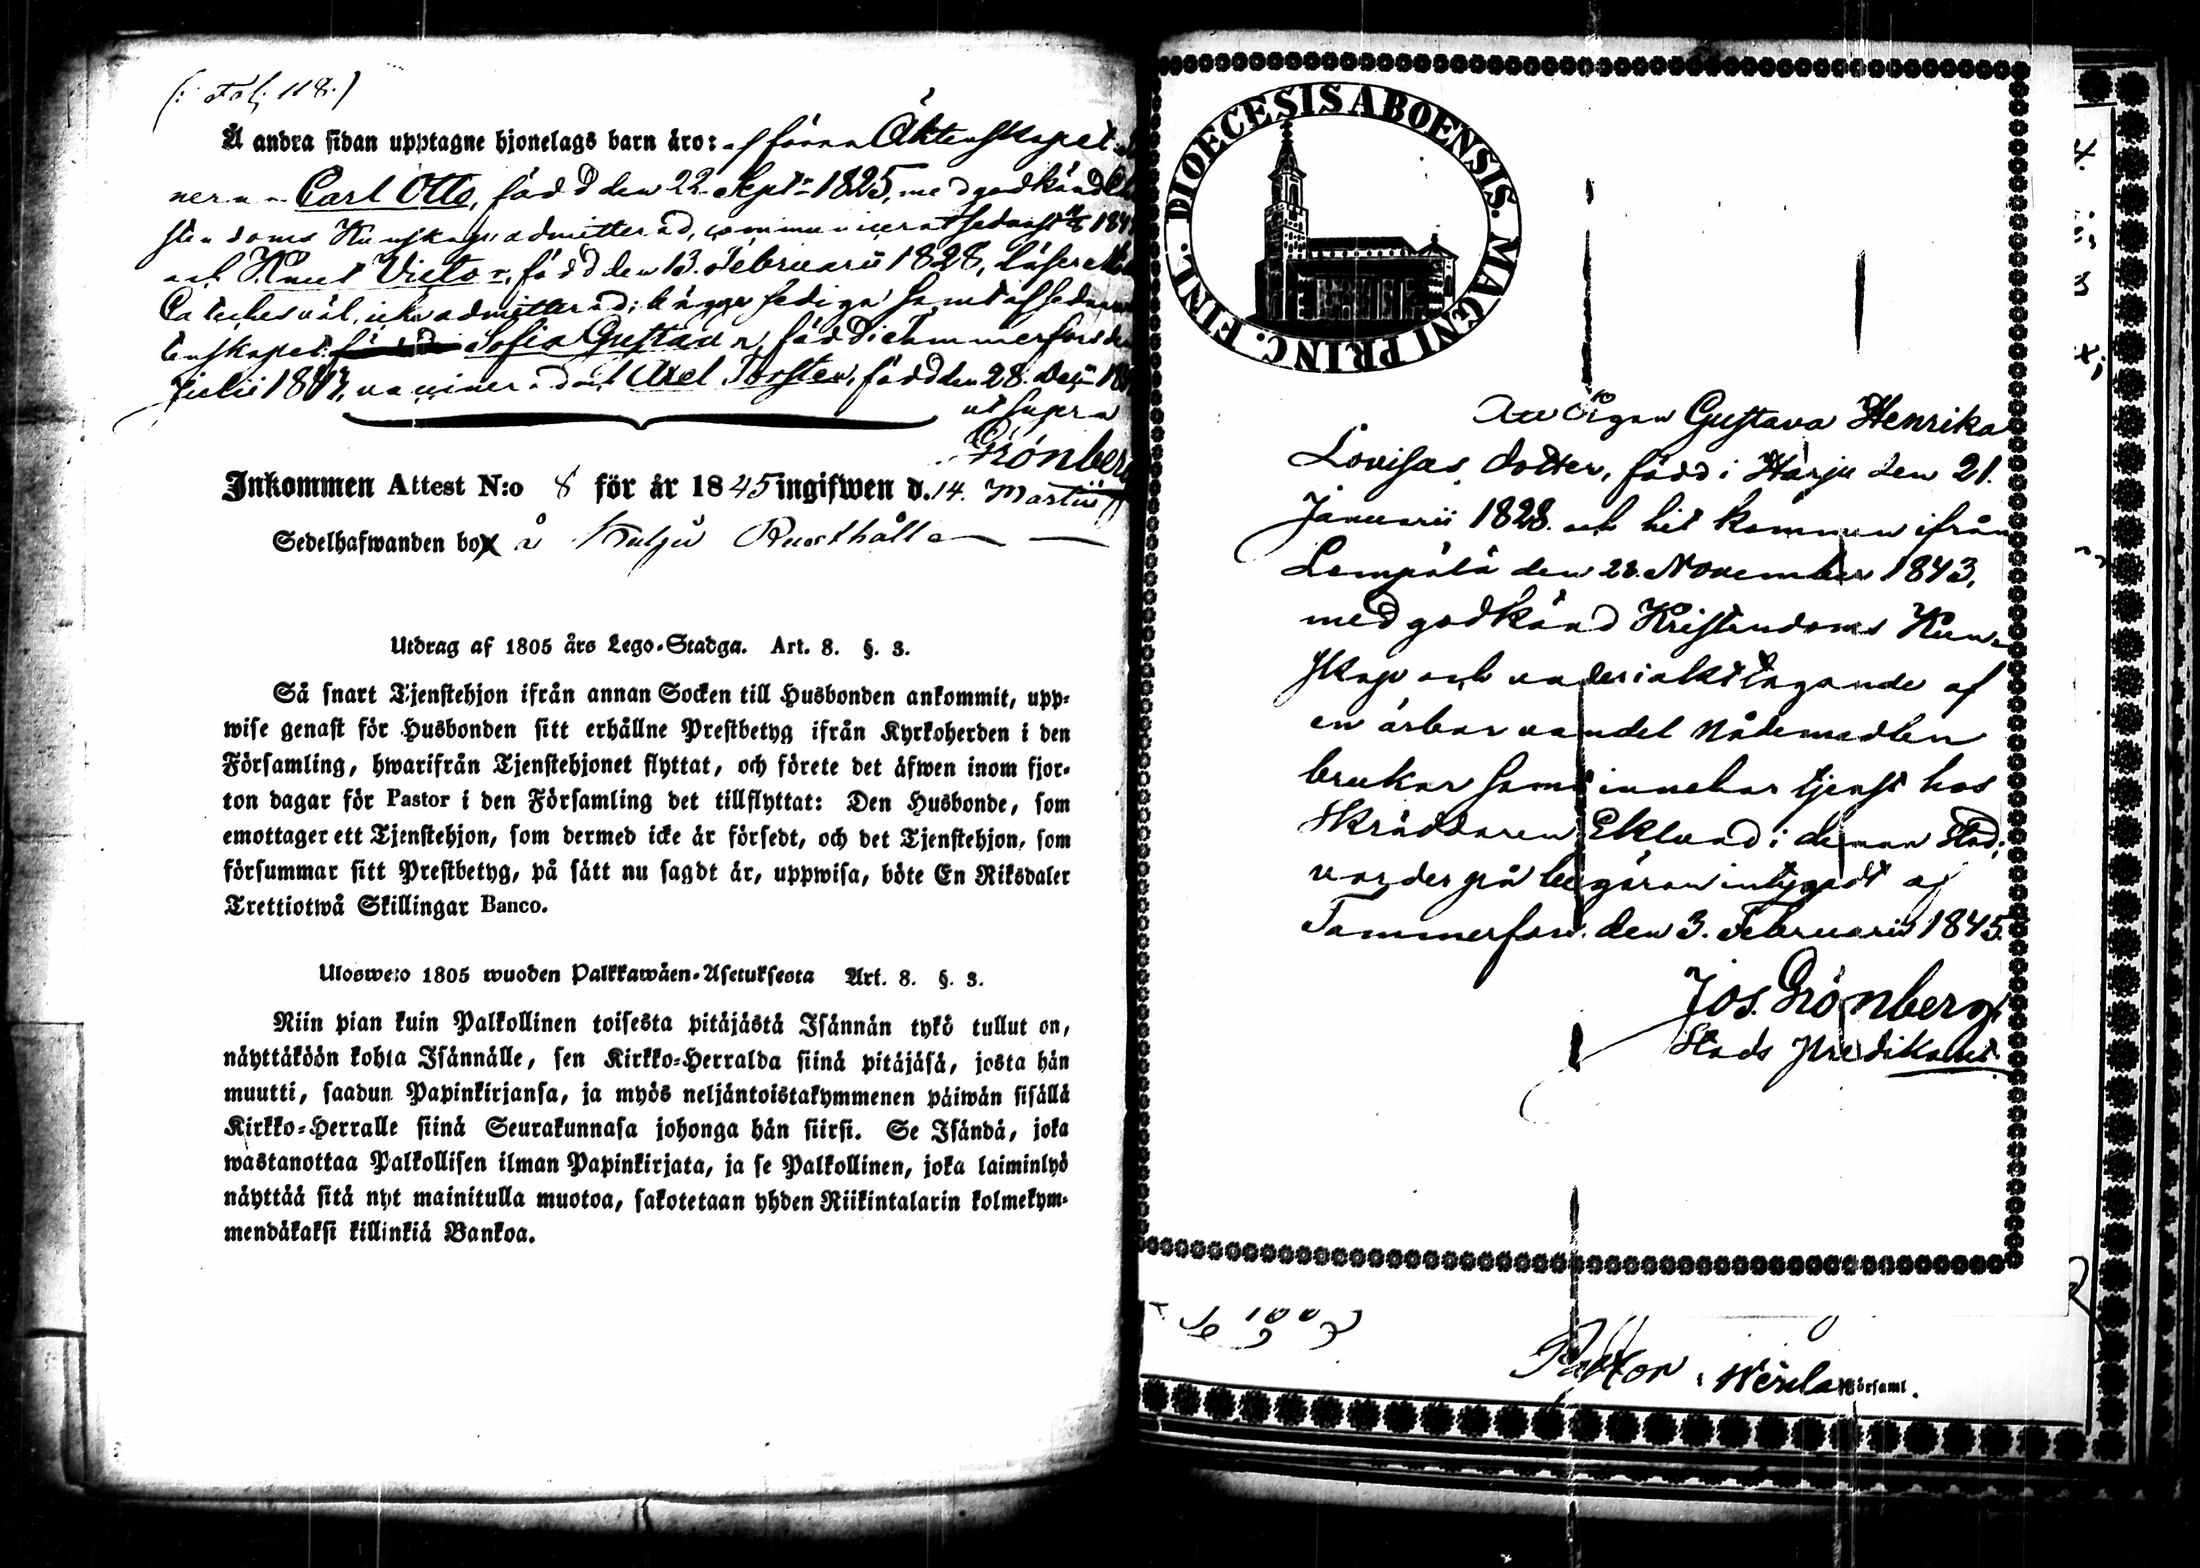 (: Fol. 118.)
Å andra sidan upptagne hjonelags barn äro: af förra Äktenskapet
nerna Carl Otto, född den 22. Sept. 1825, med godkänd
stendoms Kunskap admitterad, communicerat sednast
och Knut Victor, född den 13. Februarii 1828, läser
Catechesväl, icke admitterad; bägge lediga samt af sednare
tenskapet: Sofia Gustava, född i Tammerfors den
Julii 1843, vaccinerad och Axel Torsten, född den 28. Dec.
ut supra
Grönberg
Inkommen Attest N:o 8 för år 1845 ingifwen d. 14. Martii
Sedelhafwanden bor å Kulju Rusthåll
Utdrag af 1805 års Lego-Stadga. Art. 8. §. 3.
Så snart Tjenstehjon ifrån annan Socken till Husbonden ankommit, upp-
wise genast för Husbonden sitt erhållne Prestbetyg ifrån Kyrkoherden i den
Församling, hwarifrån Tjenstehjonet flyttat, och förete det äfwen inom fjor-
ton dagar för Pastor i den Församling det tillflyttat: Den Husbonde, som
emottager ett Tjenstehjon, som dermed icke är försedt, och det Tjenstehjon, som
försummar sitt Prestbetyg, på sätt nu sagdt är, uppwisa, böte En Riksdaler
Trettiotwå Skillingar Banco.
Ulosweto 1805 wuoden Palkkawäen-Asetuksesta Art. 8. §. 3.
Niin pian kuin Palkollinen toisesta pitäjästä Isännän tykö tullut on,
näyttäköön kohta Isännälle, sen Kirkko-Herralda siinä pitäjäsä, josta hän
muutti, saadun Papinkirjansa, ja myös neljäntoistakymmenen päiwän sisällä
Kirkko-Herralle siinä Seurakunnasa johonga hän siirsi. Se Isändä, joka
wastanottaa Palkollisen ilman Papinkirjata, ja se Palkollinen, joka laiminlyö
näyttää sitä nyt mainitulla muotoa, sakotetaan yhden Riikintalarin kolmekym-
mendäkaksi killinkiä Bankoa.
DIOECESIS ABOENSIS. MAGNI PRINC. FINL.
Att Pigan Gustava Henrika
Lovisas dotter, född i Harju den 21.
Januarii 1828. och hit kommen ifrån
Lempälä den 28. November 1843,
med godkänd Kristendoms Kun-
skap och under iakttagande af
en ärbar vandel Nådemedlen
brukar samt innehar tjenst hos
Skräddaren Eklund i denna Stad;
varder på begäran intygadt af
Tammerfors. den 3. Februarii 1845.
Jos. Grönberg
Stads Predikant.
Pastor i Wesila Församl.